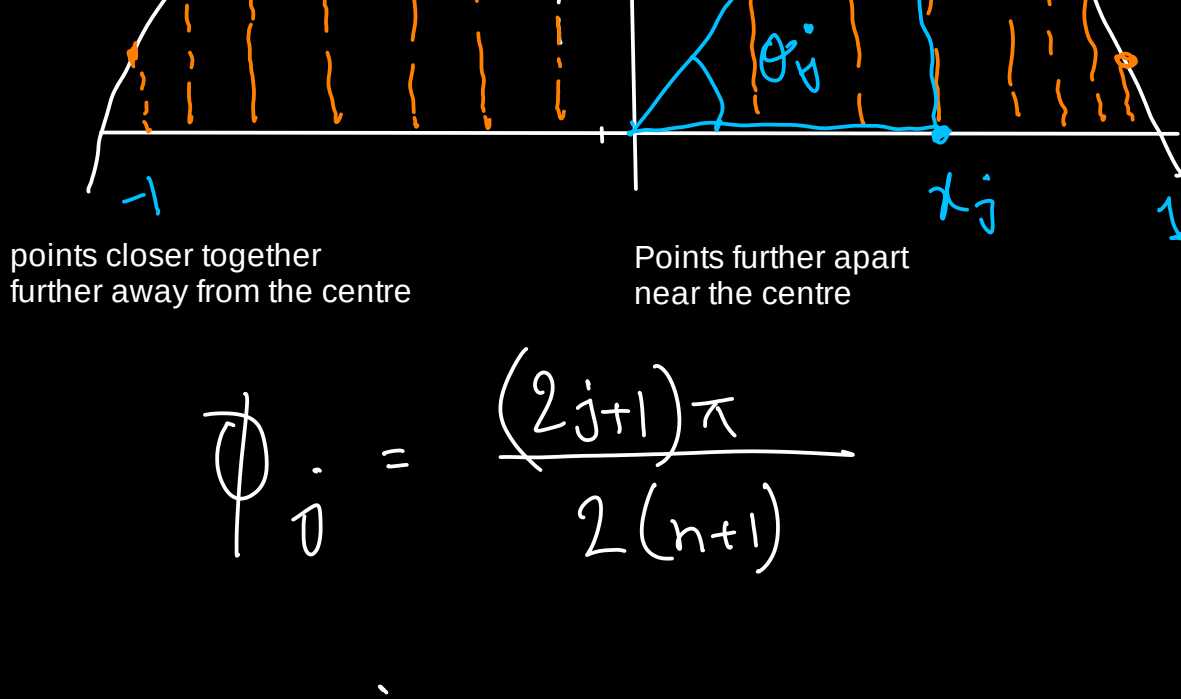 θj
-1
xj
1
points closer together
further away from the centre
Points further apart
near the centre
ϕj = (2j+1)π / 2(n+1)